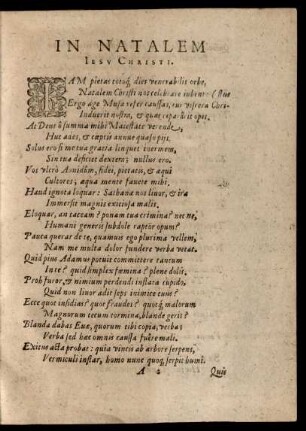 IN NATALEM
IESV CHRISTI.
IAM pietas totoq́; dies venerabilis orbe,
Natalem Christi nos celebrare iubent:
Ergo age Musa refer caussas, cur viscera Chri-
Induerit nostri, & quae cepit opes.
At Deus ô summa mihi Maiestate verende,
Huc ades, & cœptis annue quaeso pijs.
Solus ero si me tua gratia linquet inermem,
Sin tua deficiet dextera; nullus ero.
Vos vltrò Aonidum, fidei, pietatis, & aequi
Cultores; aqua mente fauete mihi.
Haud ignota loquar: Sathanae nos liuor, & ira
Immersit magnis exitiosa malis.
Eloquar, an taceam? ponam tua crimina? nec ne,
Humani generis subdole raptor opum?
Pauca querar de te, quamuis ego plurima vellem,
Nam me multa dolor fundere verba vetat.
Quid pius Adamus potuit committere tantum
In te? quid simplex fœmina? plene dolis.
Proh furor, & nimium perdendi instata cupido,
Quid non liuor adit sepe inimice cuini?
Ecce quot insidias? quot fraudes? quotq́; malorum
Magnorum tecum formina, blande geris?
Blanda dabas Euae, quorum tibi copia, verba:
Verba sed haec omnis caussa fuêre mali.
Exitus acta probat: quia vincis ab arbore serpens,
Vermiculi instar, homo nunc quoq; serpit humi.
A 2 Quis